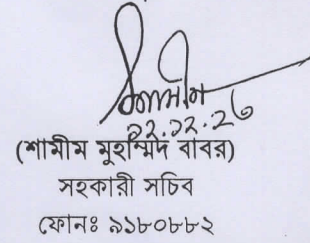 শামীম
১২.১২.২৩
(শামীম মুহাম্মদ বাবর)
সহকারী সচিব
ফোনঃ ৯১৮০৮৮২